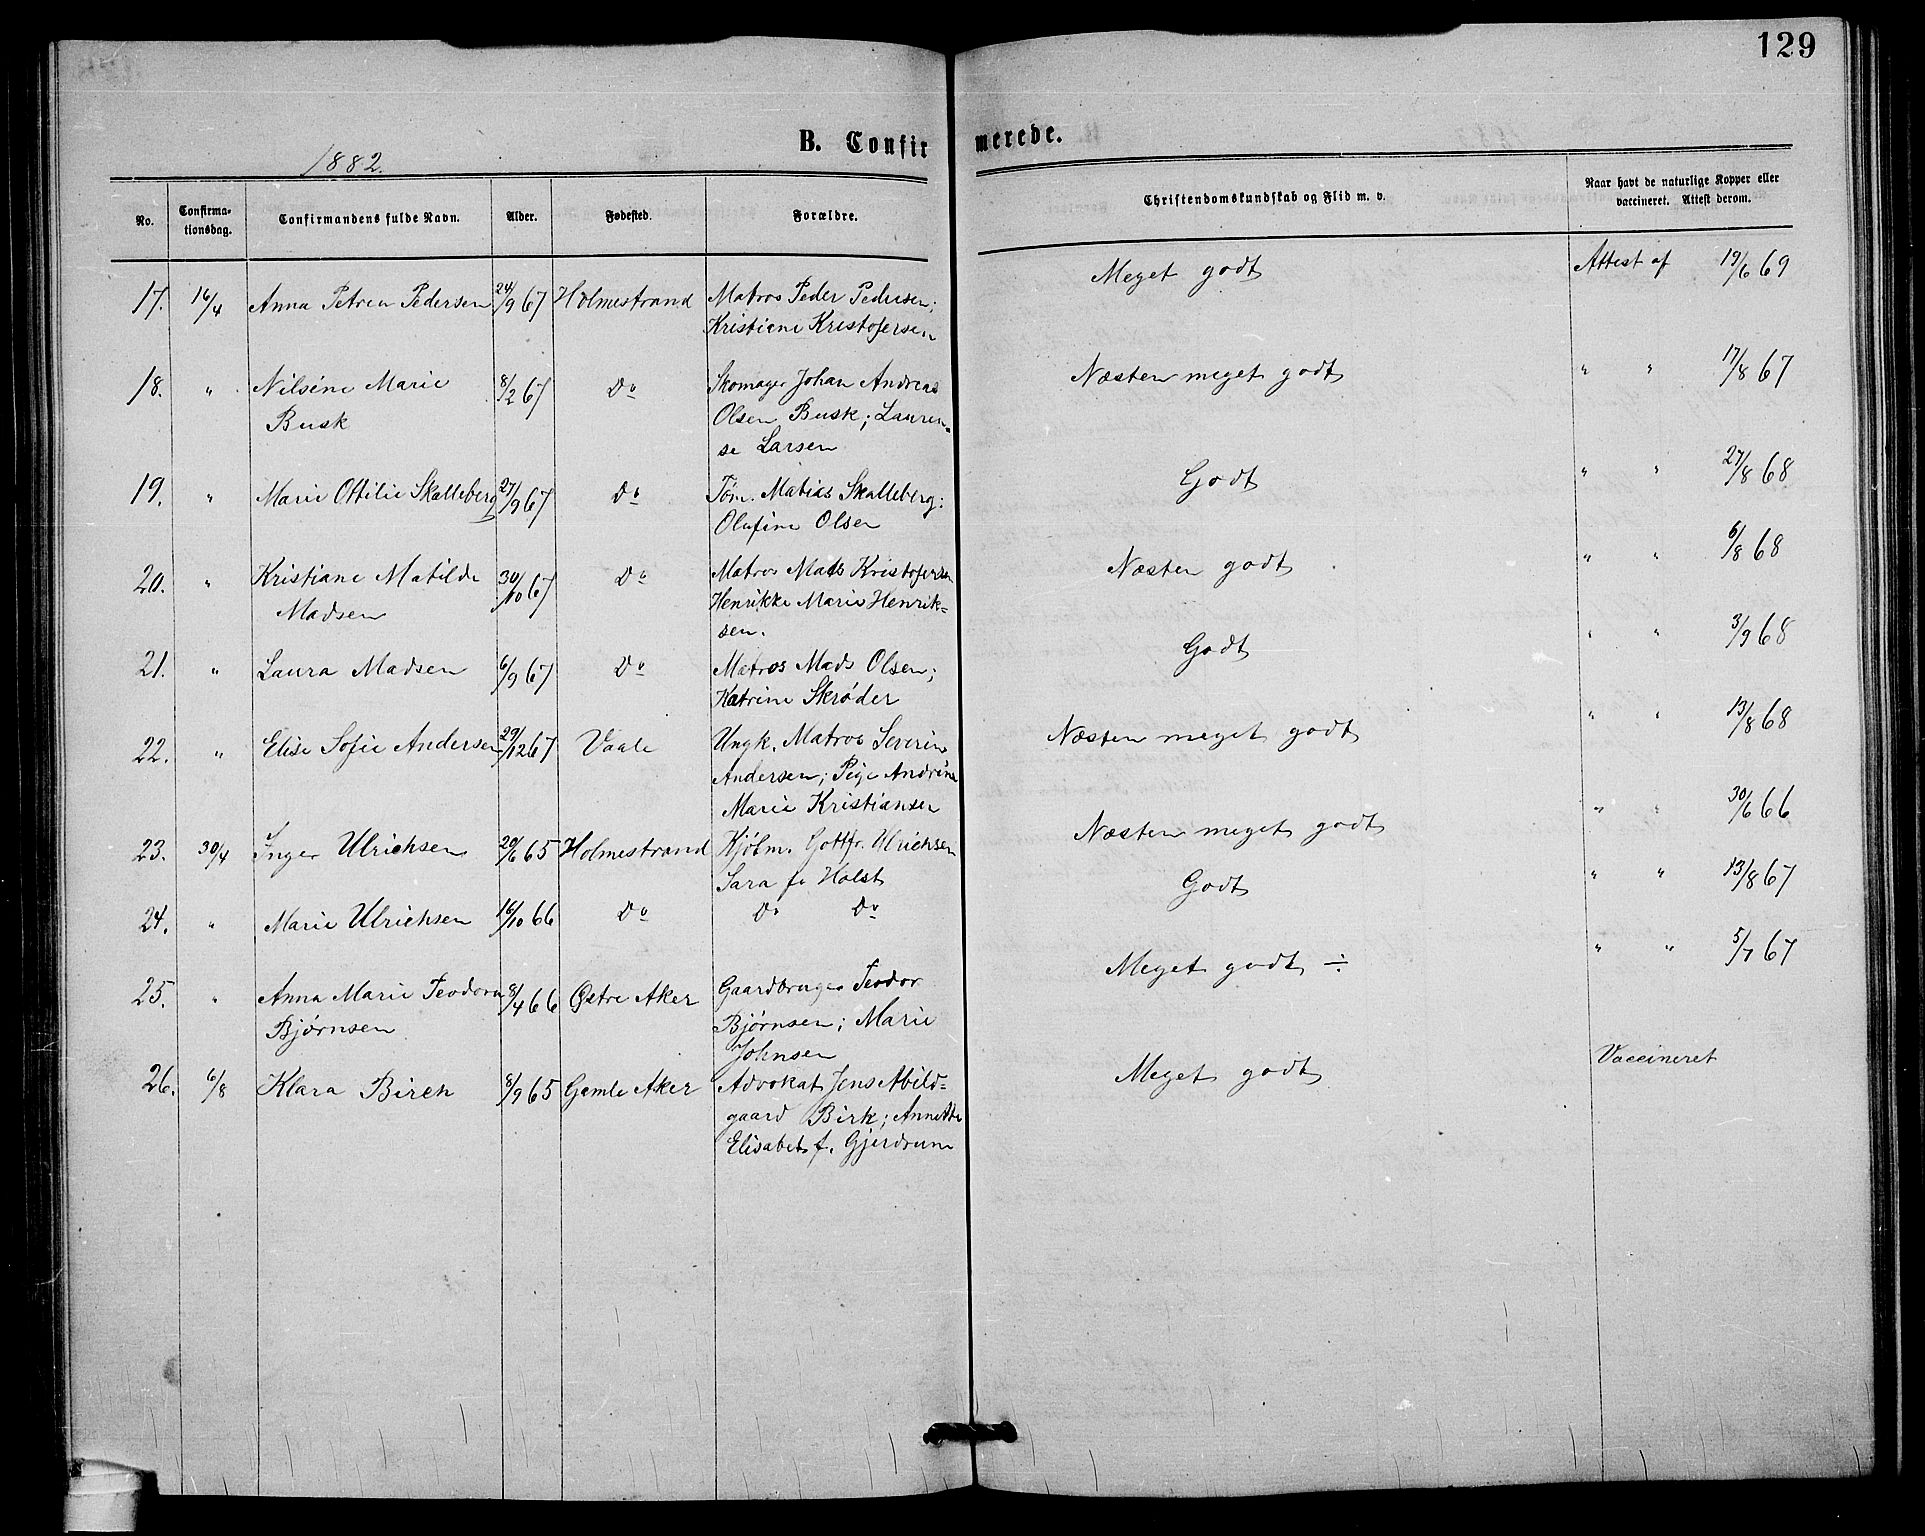 129
B. Confirmerede.
1882.
No. Confirmationsdag. Confirmandens fulde Navn. Alder. Fødested. Forældre. Christendomskundskab og Flid m. v. Naar havt de naturlige Kopper eller vaccineret. Attest derom.
17. 16/4 Anna Petrea Pedersen 24/9 67 Holmestrand Matros Peder Pedersen; Meget godt Attest af 19/6 69
Kristiane Kristofersen
18. " Nilsine Marie 8/2 67 Do Skomager Johan Andreas Næsten meget godt " " 17/8 67
Busk Olsen Busk; Lauren-
se Larsen
19. " Marie Ottilie Skalleberg 27/9 67 Do Tøm. Matias Skalleberg: Godt " " 27/8 68
Olufine Olsen
20. " Kristiane Matilde 30/10 67 Do Matros Mads Kristofersen Næsten godt " " 6/8 68
Madsen Henrikke Marie Henrik-
sen.
21. " Laura Madsen 6/9 67 Do Matros Mads Olsen; Godt " " 3/9 68
Katrine Skrøder
22. " Elise Sofie Andersen 29/12 67 Vaale Ungk. Matros Severin Næsten meget godt " " 13/8 68
Andersen; Pige Andrine
Marie Kristiansen
23. 30/4 Inger Ulrichsen 20/6 65 Holmestrand Kjølm. Gottfr. Ulrichsen Næsten meget godt " " 30/6 66
Sara f. Holst
24. " Marie Ulrichsen 16/10 66 Do Do Do Godt " " 13/8 67
25. " Anna Marie Teodora 8/4 66 Østre Aker Gaardbruger Teodor Meget godt ÷ " " 5/7 67
Bjørnsen Bjørnsen; Marie
Johnsen
26. 6/8 Klara Birch 8/9 65 Gamle Aker Advokat Jens Abild- Meget godt Vaccineret
gaard Birk; Annette
Elisabet f. Gjerdrum